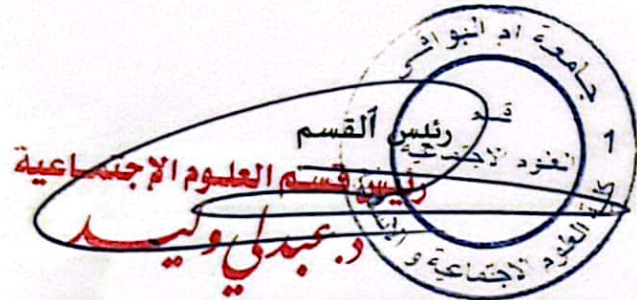 جامعة ام البواقي
قسم
العلوم الاجتماعية
1
كلية العلوم الاجتماعية و
رئيس ألقسم
رئيس قسم العلوم الإجتماعية
د. عبدلي وليد